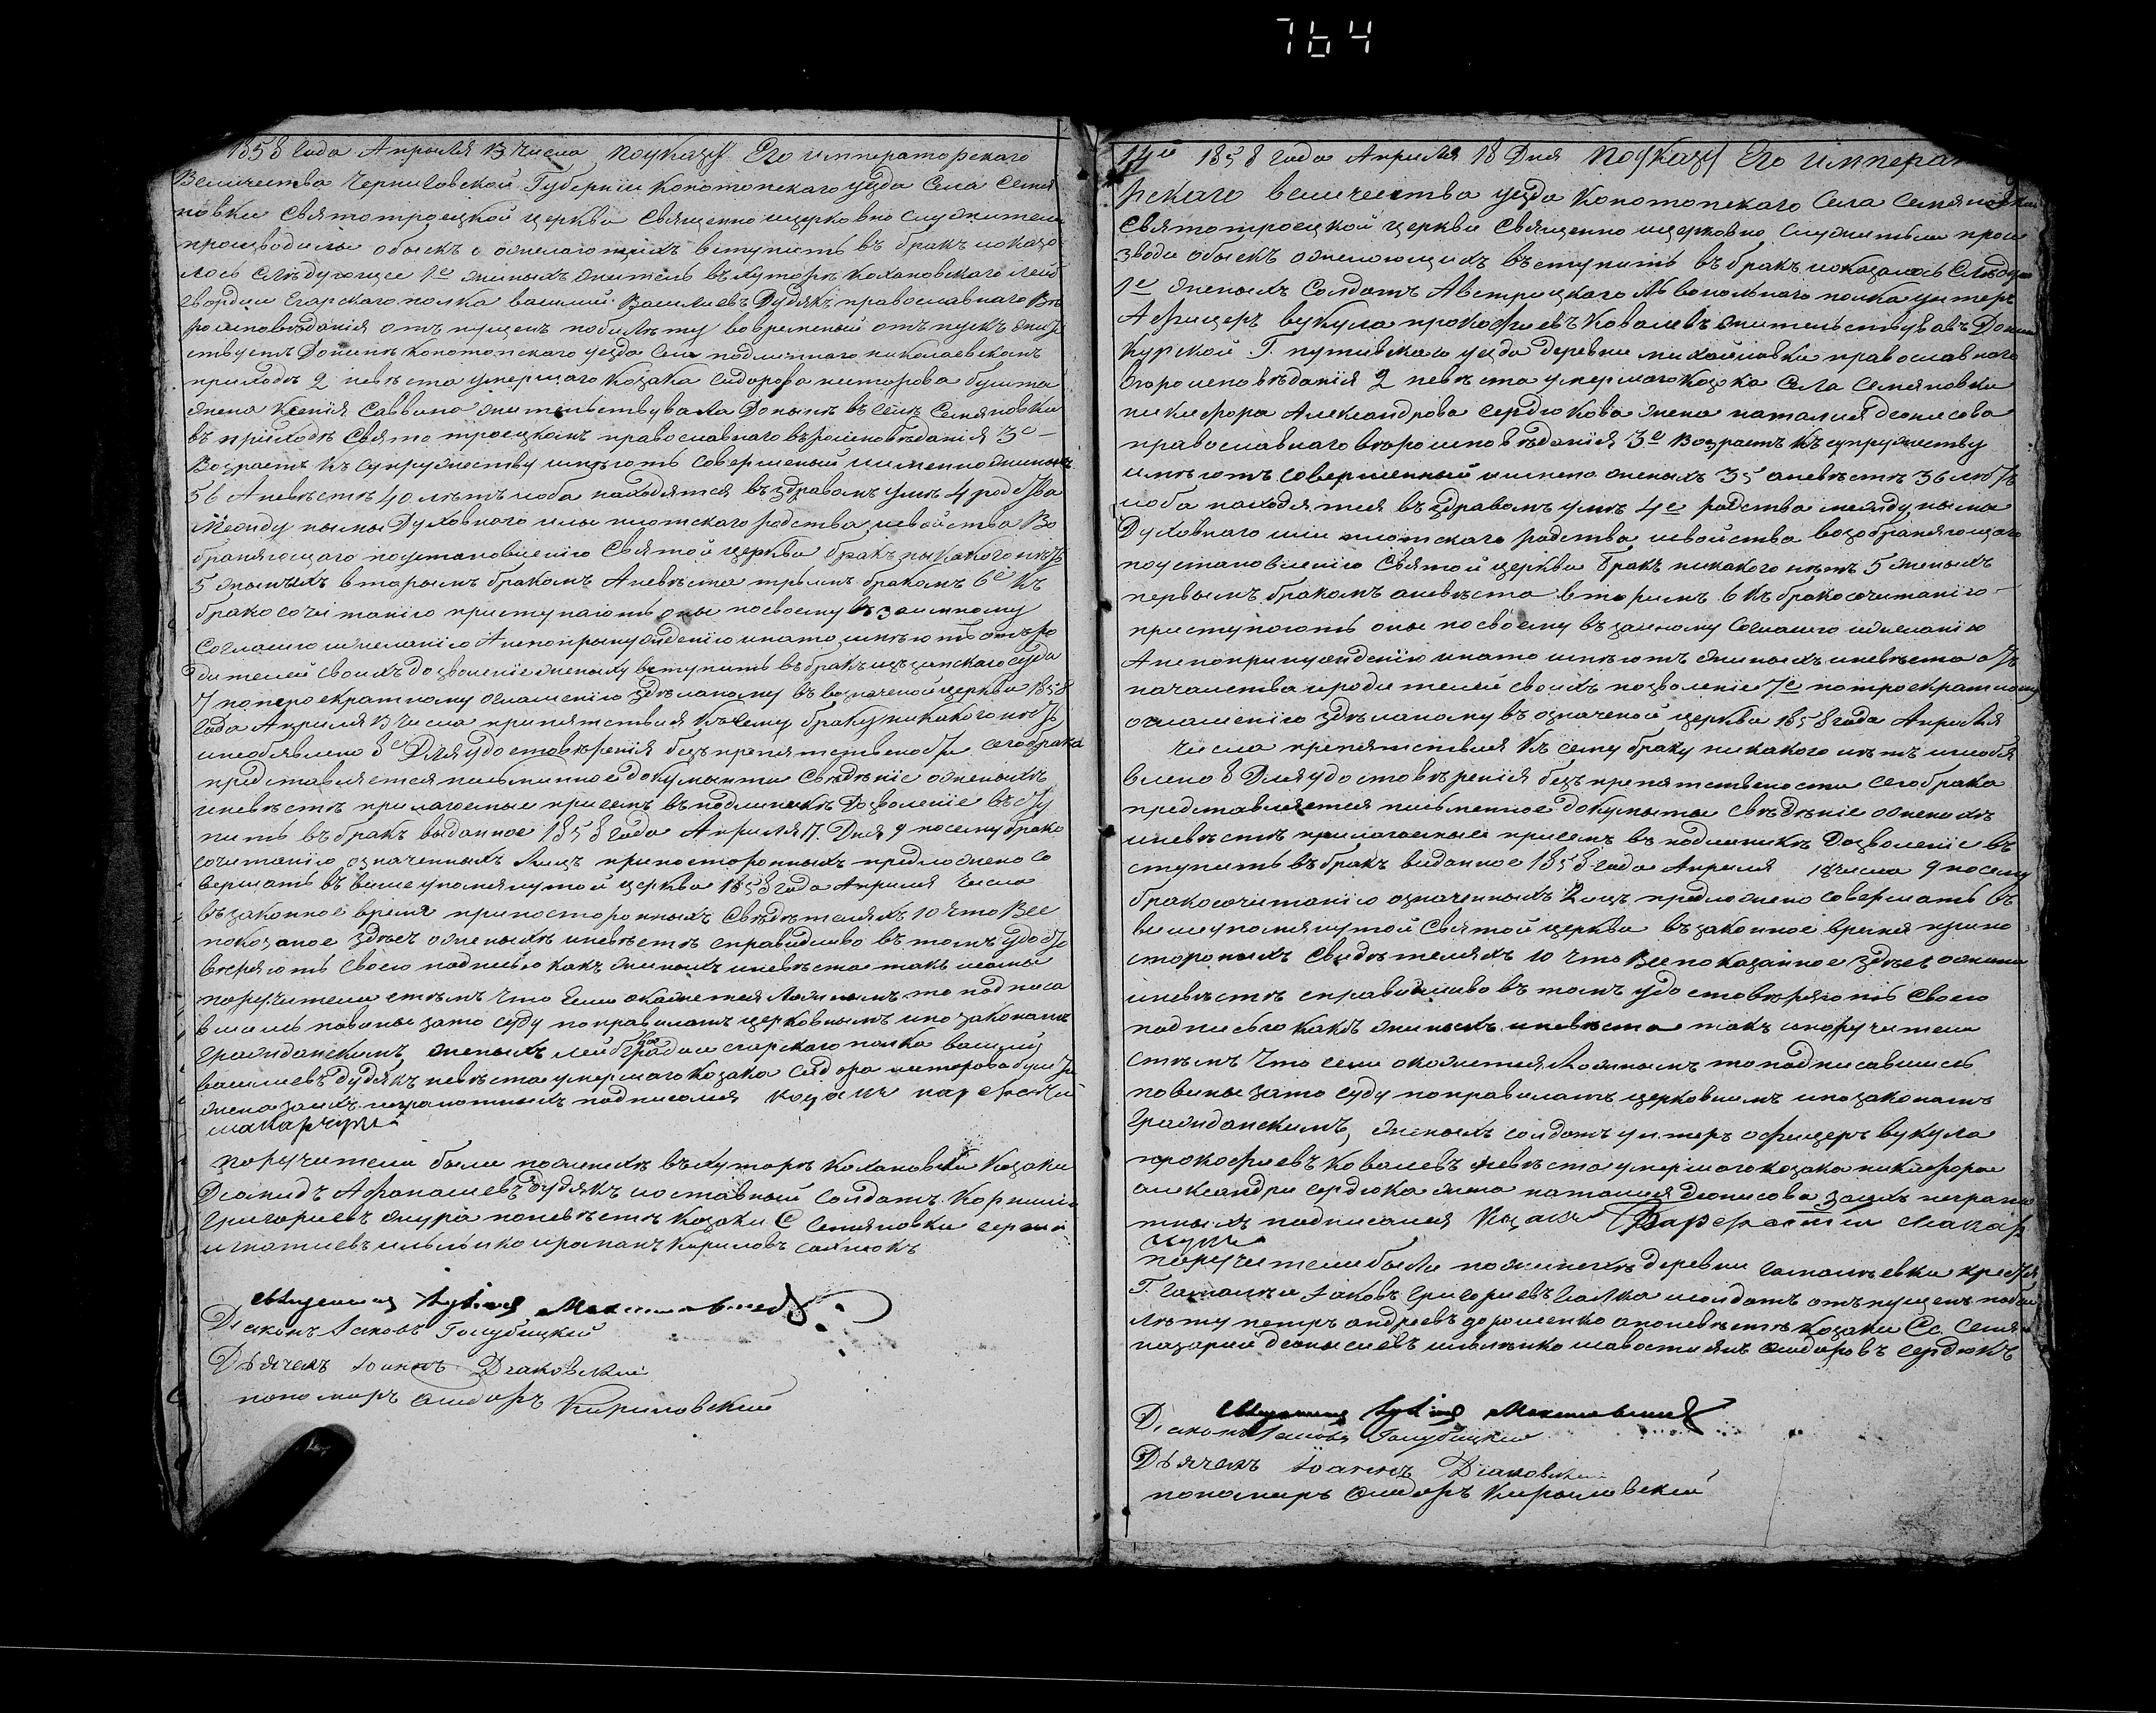 764
1858 Года Апрыля 13 Числа поуказу Его императорского
Величества Черниговской Губернии Конотопского уезда Села Семя
новки Святотроецкой церкви Священно ицерковно служители
производили обыскъ о желающихъ вступить въ бракъ и оказо
лось следующее 1е женыхъ житель въ хуторе Кохановского лейб
гвордии Егарского полка василий Васильевъ Дудякъ православного Ве
роисповеданія отъ пущенъ побилѣту вовременый отъ пускъ жите
ствуетъ Донынѣ Конотопского уезда Села подлипного николаевскомъ
приходѣ 2 невѣста умершаго Козака Сидорова нестерова бушта
жена Ксенія Саввина жительствувала Донынѣ въ селѣ Семяновки
въ приходѣ Свято троецкомъ православнаго вѣроисповѣданія 3е
Возрастъ Къ супружеству имѣютъ совершеный и именно женыхъ
56 Аневѣстѣ 40 лѣтъ иоба находятся въ здравомъ умѣ 4 родства
Между нымы Духовного илы плотского родства исвойства Во
браняющаго поустановлению Святой церкви бракъ ныкакого нѣтъ
5 женыхъ вторымъ бракомъ Аневѣста трымъ бракомъ 6е Къ
брако сочитанію приступаютъ оны посвоему взаимному
Согласию ижеланію Анепопрынуждению инато имѣютъ отъ ро
дителей своихъ дозволеніе женыху вступить въ бракъ изъ земского суда
7 потроекратному оглашению здѣланому въ возначеной церкви 1858
Года Апрыля 13 Числа препятствия Къ сему браку никакого нѣтъ
инеобявлено 8е Для удостовѣренія безъ препятствености сегобрака
представляется письминное документи Свѣдѣніе оженыхѣ
иневѣстѣ прилагаемые присемъ въ подлиникѣ Дозволеніе въсту
пить въ бракъ выданное 1858 Года Апрыля 17 Дня 9 посему брако
сочитанию означенныхъ Лицъ припосторонныхъ предложено со
вершать въ вышеупомянутой церкви 1858 года Апрыля Числа
въ законное время припосторонныхъ Свѣдѣтеляхъ 10 Что Все
показаное здѣсь оженыхѣ иневѣстѣ справидливо въ томъ удосто
вѣряютъ своею подписью какъ женыхъ иневѣста такъ ионы
поручители стѣмъ Что Ежели окажется Ложнымъ то подписа
вшиеся повины зато суду поправиламъ церковнымъ ипо законамъ
Гражданскимъ женыхъ лейбгвардии егарского полка василий
василиевъ дудякъ невѣста умершаго козака Сидора нестерова бушта
жена заихъ неграмотныхъ подписался козакъ парфентий
макарчукъ
Поручители были поженыхѣ въ хуторѣ Кохановки Козаки
Демидъ Афанасиевъ дудякъ иоставный Солдатъ Корнилий
Григориевъ жура поневѣстѣ Козаки С Семяновки
игнатиевъ ильенко ироманъ Кириловъ
Священник Максимович
Діаконъ Іаковъ Голубицкій
Дьячекъ Іоаннъ Діаковский
пономаръ Сидоръ Кириловский
14й 1858 Года Апрыля 18 Дня Поуказу Его императ
рского величества уезда Конотопского Села Семяновки
Святотроецкой церкви Священно ицерковно служители прои
зводи обыскъ ожелающихъ въступить въ бракъ иоказалось Следую
1е женыхъ Солдатъ Австрицкого полка унтеръ
Афицеръ вукула прокофиевъ Ковалевъ жительствувавъ Донынѣ
Курской Г. путивского уезда деревни михайловки православного
вероисповѣданія 2 невѣста умершаго козока Села Семяновки
никифора Александрова сердюкова жена наталия деонисова
православнаго вѣроисповѣданія 3е Возрастъ Къ супружеству
имѣютъ совершенный имено женыхъ 35 аневѣстѣ 36 лѣтъ
иоба находятся въ здравомъ умѣ 4е родства между нымы
Духовного или плотского родства исвойства возобраняющаго
поустановленію Святой церкви бракъ никакого нѣтъ 5 женыхъ
первымъ бракомъ аневѣста вторимъ 6 Къ бракосочитанію
приступоютъ оны посвоему взаимному согласию ижеланію
Анепопринуждению инато имѣютъ женыхъ иневѣста отъ
начальства иродителей своихъ позволеніе 7е потроекратному
оглашению здѣланому въ означеной церкви 1858 года Апрыля
Числа препятствия Къ сему браку никакого нѣтъ инеобя
влено 8 Для удостовѣренія безъ препятствености сегобрака
представляется письменное документы свѣдѣніе оженыхѣ
иневѣстѣ прилагаемые присемъ въ подлиникѣ Дозволеніе въ
ступить въ бракъ виданное 1858 года Апрыля 18 числа 9 посему
бракосочитанию означенныхъ Лицъ предложено совершать въ
вышеупомянутой Святой церкви въ законное время припо
стороныхъ Свидѣтеляхъ 10 Что Все показанное здѣсь оженыхѣ
иневѣстѣ справидливо въ томъ удостовѣряютъ Своею
подписью какъ женыхъ иневѣста такъ ипоручители
стѣмъ Что если окожется Ложнымъ то подписавшиеся
повины зато суду поправиламъ церковнымъ ипозаконамъ
Гражданскимъ, женыхъ солдатъ унтеръ офицеръ вукула
прокофиевъ Ковалевъ невѣста умершаго козака никифора
александра сердюка жена наталия деонисова заихъ неграмо
тныхъ подписался Козакъ Парфентий макар
чукъ
поручители были поженыхѣ деревни
Г. Іаковъ Григориевъ Галка исолдатъ отъпущенъ поби
лѣту петръ андреевъ дорошенко апоневѣстѣ козаки Сс. Семян
назарий деонысиевъ исавостиянъ Сидоровъ сердюкъ
Священник Максимович
Діаконъ Іаковъ Голубицкий
Дьячекъ Іоаннъ Діаковский
пономаръ Сидоръ Кириловский